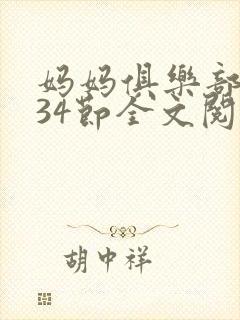 妈妈俱樂部
34節全文閱
胡中祥